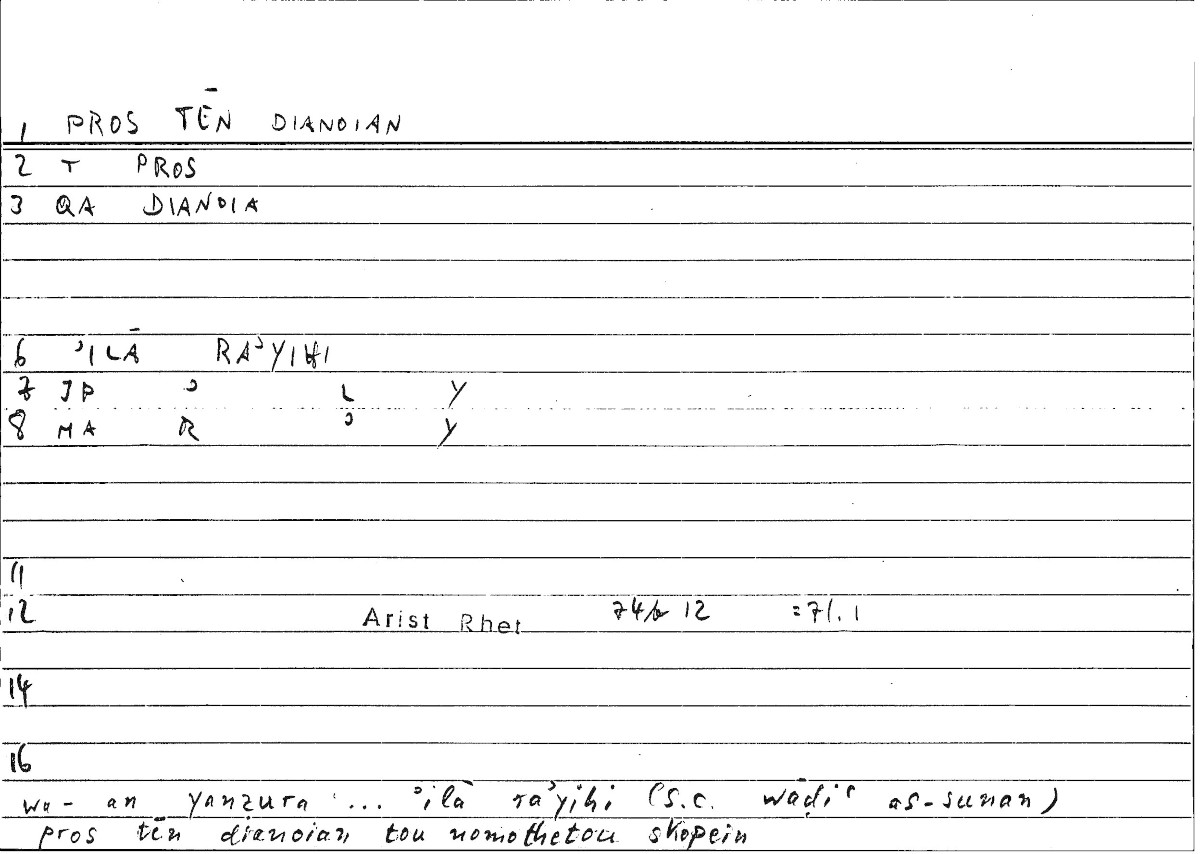 1 PROS TĒN DIANOIAN
2 T PROS
3 QA DIANOIA
6 ʾILĀ RAʾYIHI
7 JP ʾ L Y
8 MA R ʾ Y
11
12 Arist Rhet 74b 12 =71.1
14
16
wa- an yanzura ... ʾilā raʾyihi (s.c. wāḍiʿ as-sunan)
pros tēn dianoian tou nomothetou skopein